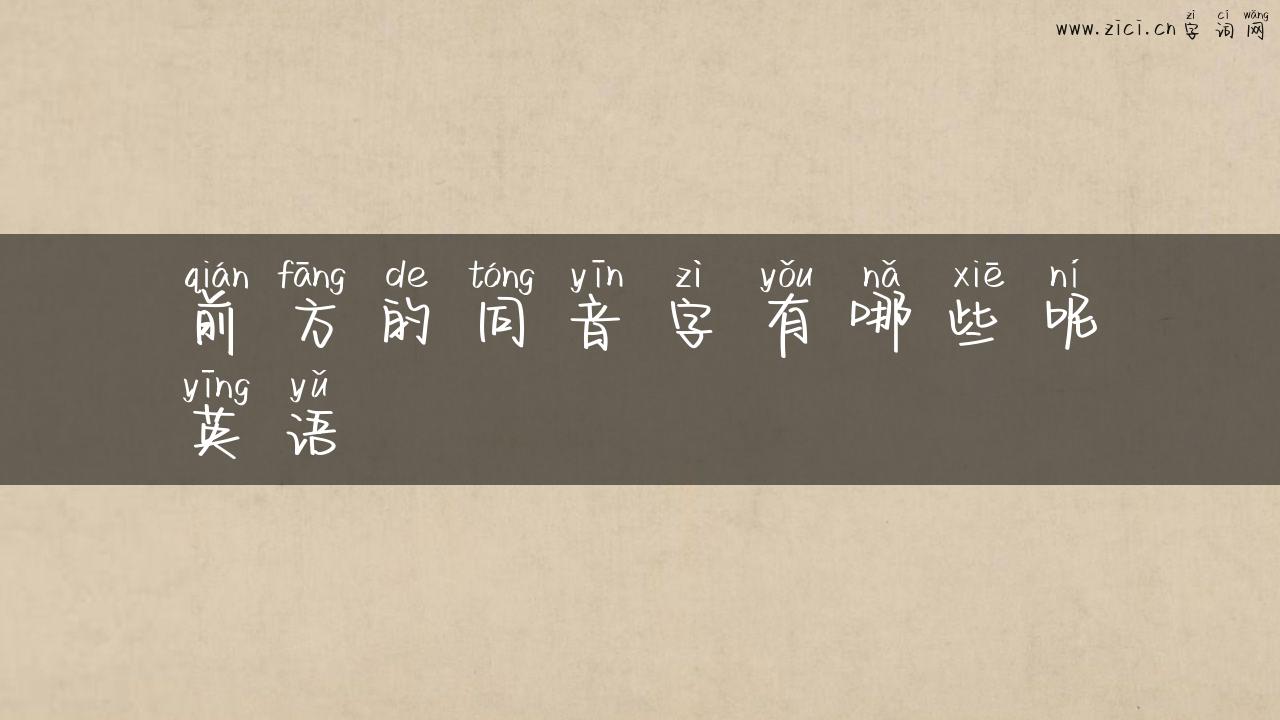 zì cí wǎng
www.zici.cn 字词网
qián fāng de tóng yīn zì yǒu nǎ xiē ní
前方的同音字有哪些呢
yīng yǔ
英语